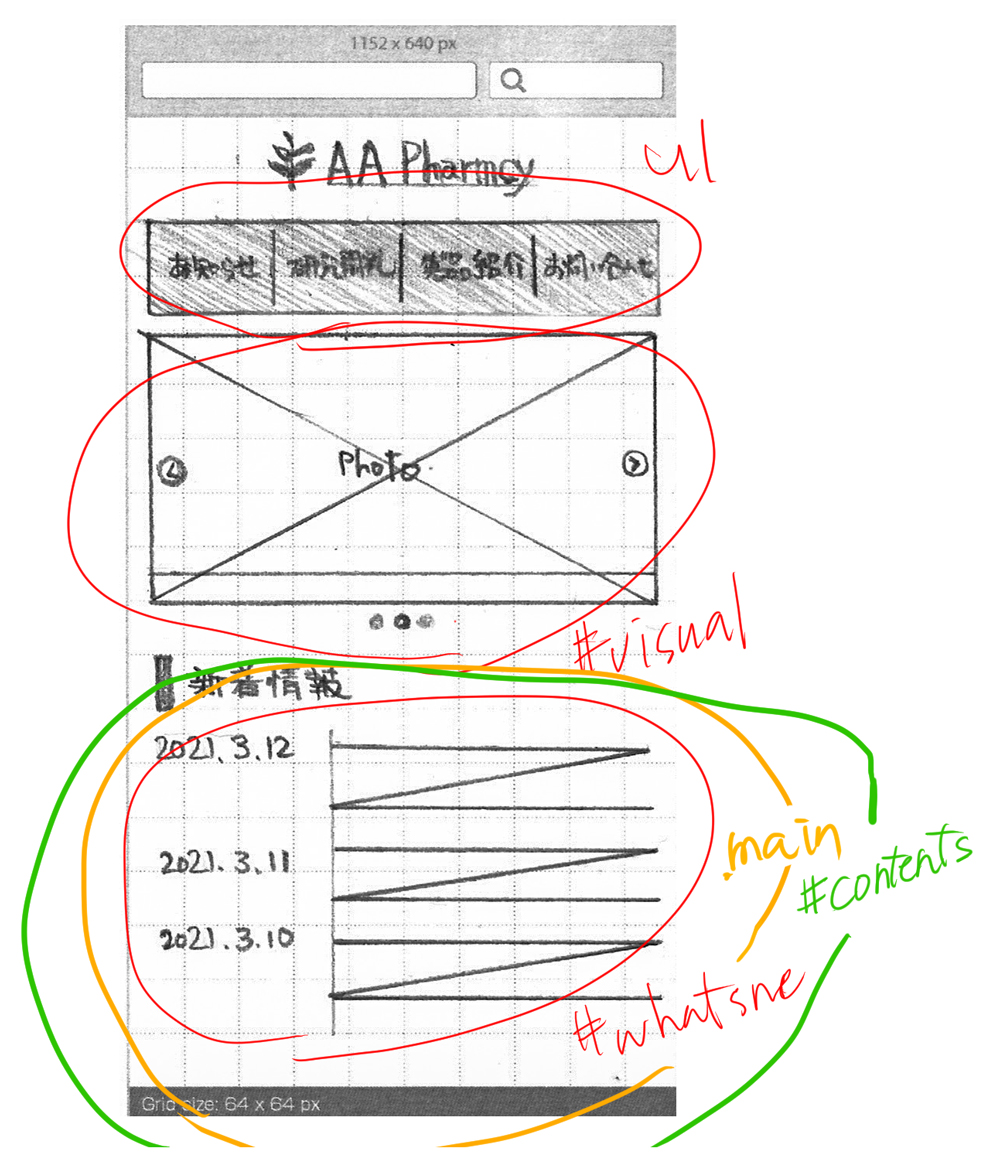 1152 x 640 px
AA Pharmcy
ul
お知らせ 研究開発 製品紹介 お問い合わせ
Photo
#visual
新着情報
2021.3.12
2021.3.11
.main
#contents
2021.3.10
#whatsne
Grid size: 64 x 64 px